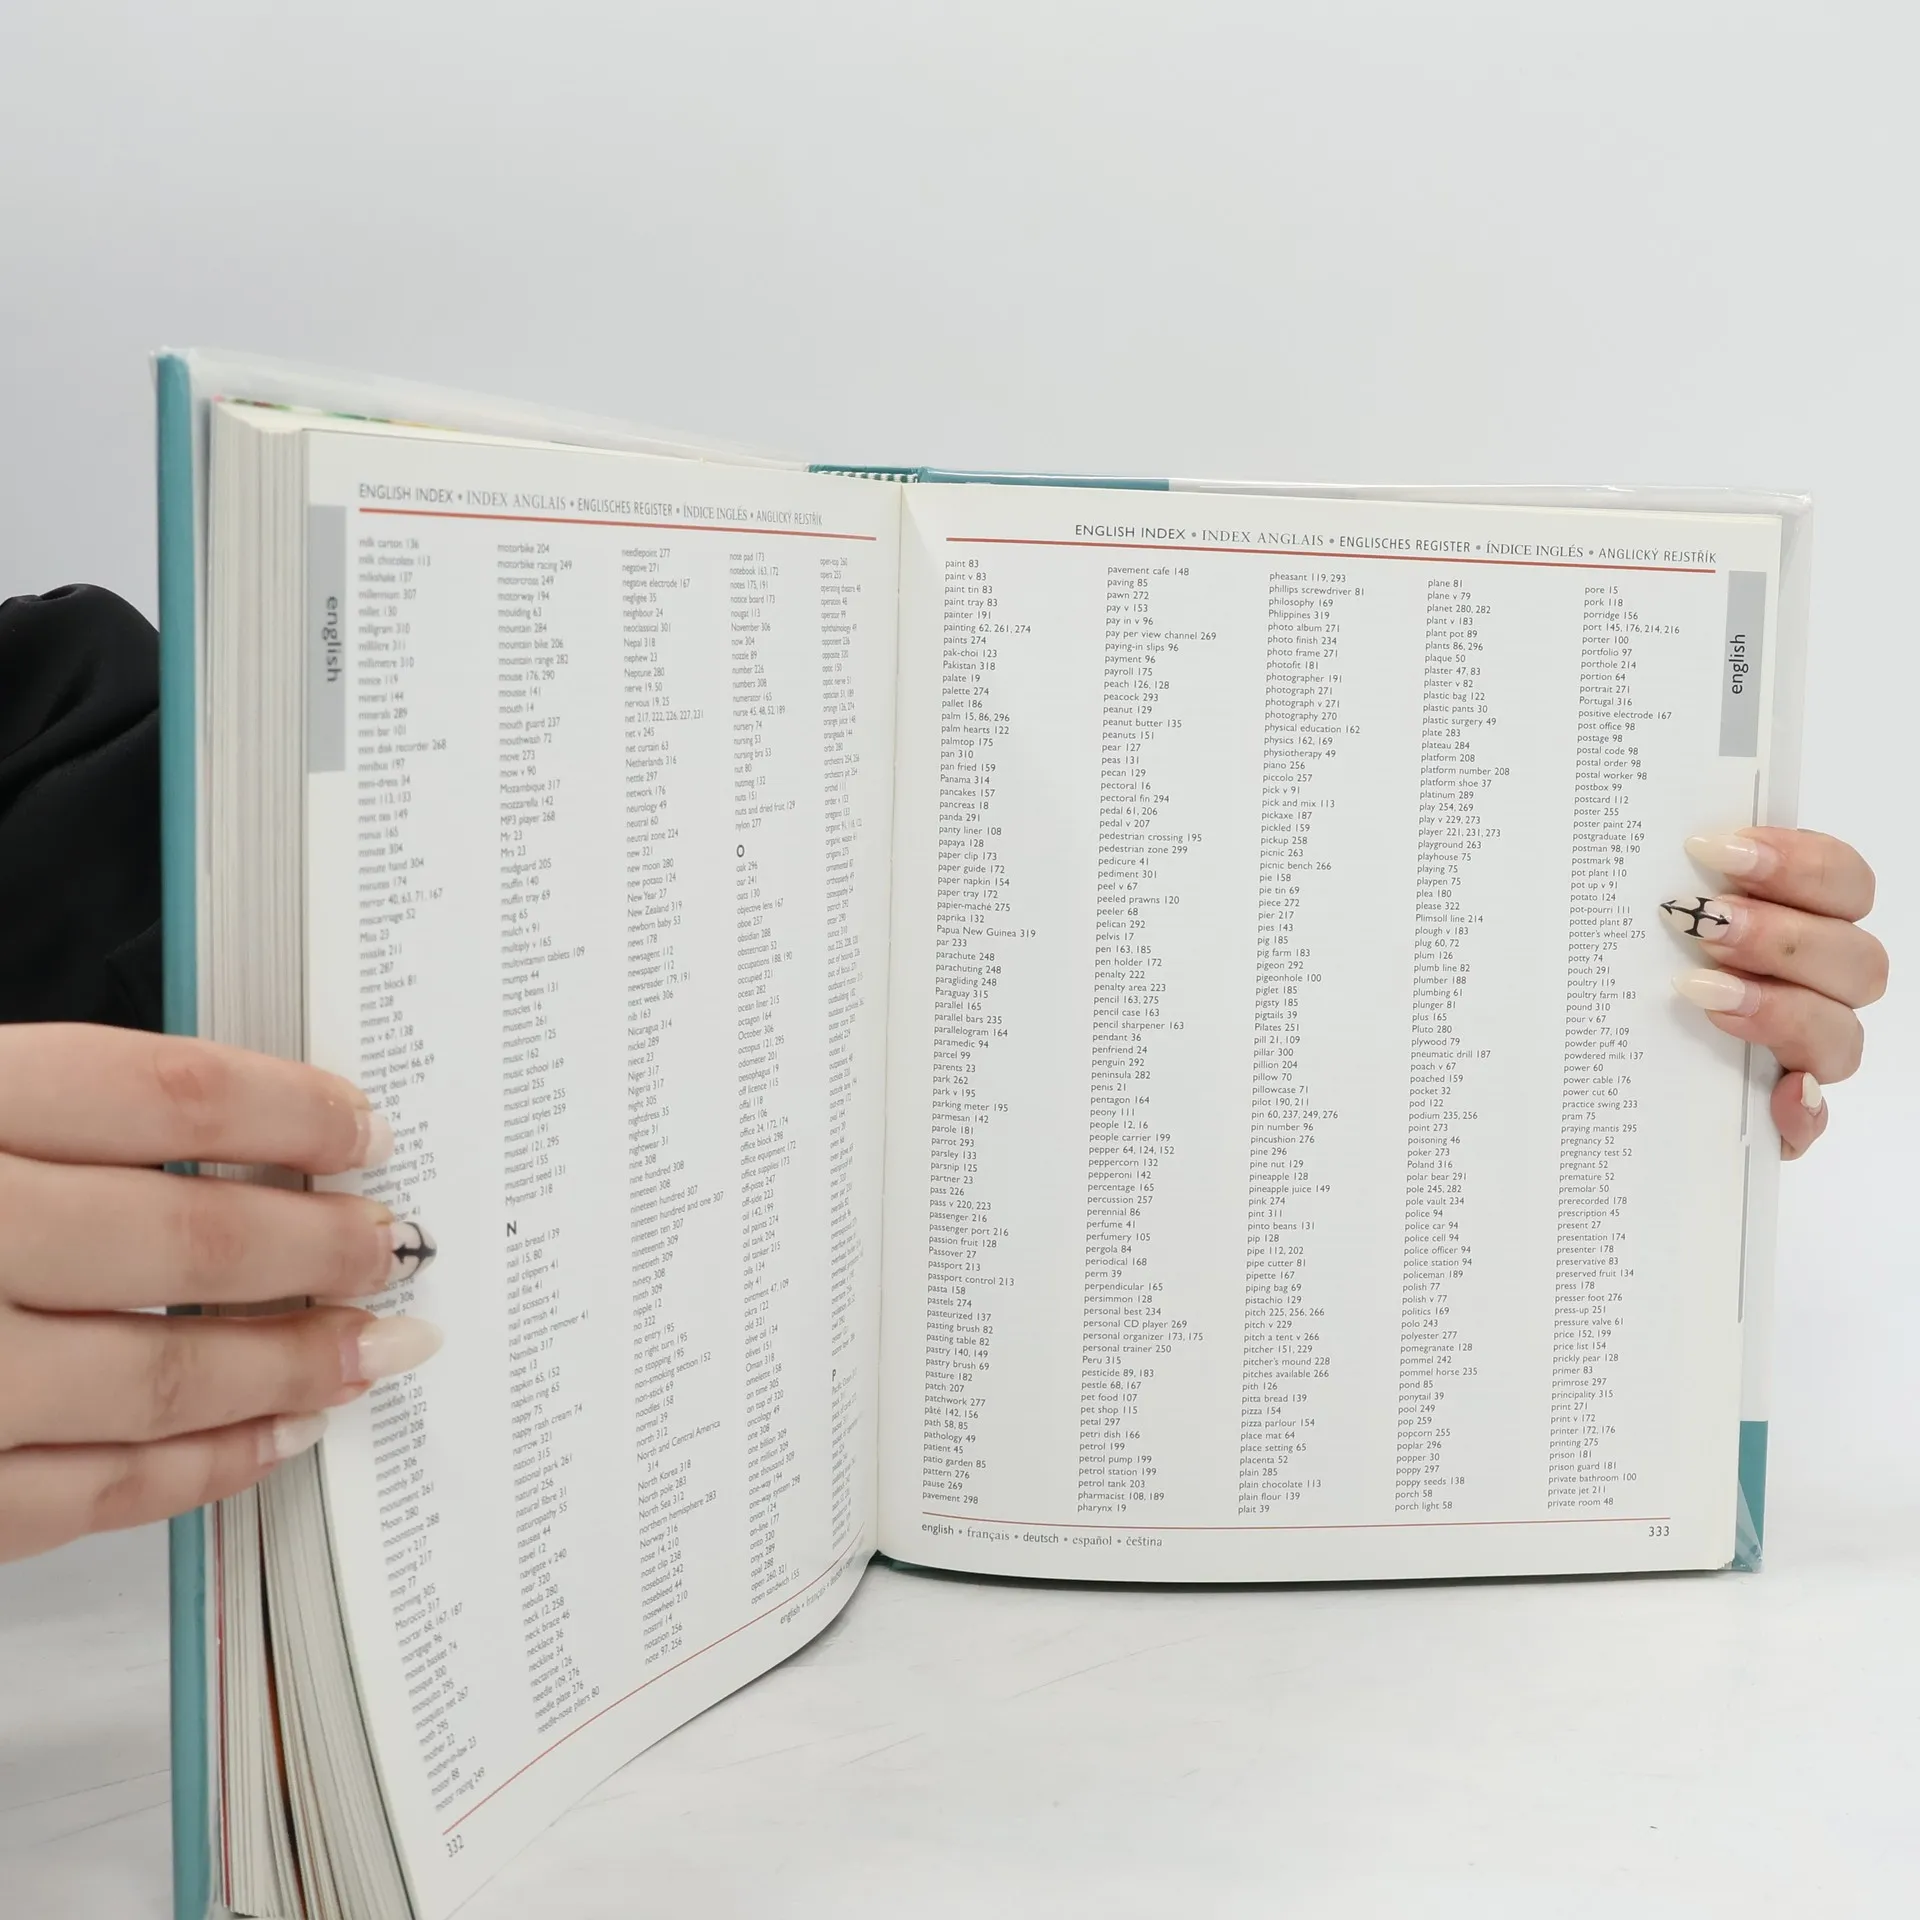 ENGLISH INDEX • INDEX ANGLAIS • ENGLISCHES REGISTER • ÍNDICE INGLÉS • ANGLICKÝ REJSTŘÍK
english
milk carton 136
milk chocolate 113
milkshake 137
millennium 307
millet 130
milligram 310
millilitre 311
millimetre 310
mince 119
mineral 144
minerals 289
mini bar 101
mini disk recorder 268
minibus 197
mini-dress 34
mint 113, 133
mint tea 149
minus 165
minute 304
minute hand 304
minutes 174
mirror 40, 63, 71, 167
miscarriage 52
Miss 23
missile 211
mist 287
mitre block 81
mitt 228
mittens 30
mix v 67, 138
mixed salad 158
mixing bowl 66, 69
mixing desk 179
model making 275
modelling tool 275
Monday 306
monkey 291
monkfish 120
monopoly 272
monorail 208
monsoon 287
month 306
monthly 307
monument 261
Moon 280
moonstone 288
moor v 217
mooring 217
mop 77
morning 305
Morocco 317
mortar 68, 167, 187
mortgage 96
moses basket 74
mosque 300
mosquito 295
mosquito net 267
moth 295
mother 22
mother-in-law 23
motor 88
motor racing 249
motorbike 204
motorbike racing 249
motorcross 249
motorway 194
moulding 63
mountain 284
mountain bike 206
mountain range 282
mouse 176, 290
mousse 141
mouth 14
mouth guard 237
mouthwash 72
move 273
mow v 90
Mozambique 317
mozzarella 142
MP3 player 268
Mr 23
Mrs 23
mudguard 205
muffin 140
muffin tray 69
mug 65
mulch v 91
multiply v 165
multivitamin tablets 109
mumps 44
mung beans 131
muscles 16
museum 261
mushroom 125
music 162
music school 169
musical 255
musical score 255
musical styles 259
musician 191
mussel 121, 295
mustard 155
mustard seed 131
Myanmar 318
N
naan bread 139
nail 15, 80
nail clippers 41
nail file 41
nail scissors 41
nail varnish 41
nail varnish remover 41
Namibia 317
nape 13
napkin 65, 152
napkin ring 65
nappy 75
nappy rash cream 74
narrow 321
nation 315
national park 261
natural 256
natural fibre 31
naturopathy 55
nausea 44
navel 12
navigate v 240
near 320
nebula 280
neck 12, 258
neck brace 46
necklace 36
neckline 34
nectarine 126
needle 109, 276
needle plate 276
needle-nose pliers 80
needlepoint 277
negative 271
negative electrode 167
negligee 35
neighbour 24
neoclassical 301
Nepal 318
nephew 23
Neptune 280
nerve 19, 50
nervous 19, 25
net 217, 222, 226, 227, 231
net v 245
net curtain 63
Netherlands 316
nettle 297
network 176
neurology 49
neutral 60
neutral zone 224
new 321
new moon 280
new potato 124
New Year 27
New Zealand 319
newborn baby 53
news 178
newsagent 112
newspaper 112
newsreader 179, 191
next week 306
nib 163
Nicaragua 314
nickel 289
niece 23
Niger 317
Nigeria 317
night 305
nightdress 35
nightie 31
nightwear 31
nine 308
nine hundred 308
nineteen 308
nineteen hundred 307
nineteen hundred and one 307
nineteen ten 307
nineteenth 309
ninetieth 309
ninety 308
ninth 309
nipple 12
no 322
no entry 195
no right turn 195
no stopping 195
non-smoking section 152
non-stick 69
noodles 158
normal 39
north 312
North and Central America
314
North Korea 318
North pole 283
North Sea 312
northern hemisphere 283
Norway 316
nose 14, 210
nose clip 238
noseband 242
nosebleed 44
nosewheel 210
nostril 14
notation 256
note 97, 256
note pad 173
notebook 163, 172
notes 175, 191
notice board 173
nougat 113
November 306
now 304
nozzle 89
number 226
numbers 308
numerator 165
nurse 45, 48, 52, 189
nursery 74
nursing 53
nursing bra 53
nut 80
nutmeg 132
nuts 151
nuts and dried fruit 129
nylon 277
O
oak 296
oar 241
oats 130
objective lens 167
oboe 257
obsidian 288
obstetrician 52
occupations 188, 190
occupied 321
ocean 282
ocean liner 215
octagon 164
October 306
octopus 121, 295
odometer 201
oesophagus 19
off licence 115
offal 118
offers 106
office 24, 172, 174
office block 298
office equipment 172
office supplies 173
off-piste 247
off-side 223
oil 142, 199
oil paints 274
oil tank 204
oil tanker 215
oils 134
oily 41
ointment 47, 109
okra 122
old 321
olive oil 134
olives 151
Oman 318
omelette 158
on time 305
on top of 320
oncology 49
one 308
one billion 309
one million 309
one thousand 309
one-way 194
one-way system 298
onion 124
on-line 177
onto 320
onyx 289
opal 288
open 260, 321
open sandwich 155
P
332
ENGLISH INDEX • INDEX ANGLAIS • ENGLISCHES REGISTER • ÍNDICE INGLÉS • ANGLICKÝ REJSTŘÍK
english
paint 83
paint v 83
paint tin 83
paint tray 83
painter 191
painting 62, 261, 274
paints 274
pak-choi 123
Pakistan 318
palate 19
palette 274
pallet 186
palm 15, 86, 296
palm hearts 122
palmtop 175
pan 310
pan fried 159
Panama 314
pancakes 157
pancreas 18
panda 291
panty liner 108
papaya 128
paper clip 173
paper guide 172
paper napkin 154
paper tray 172
papier-maché 275
paprika 132
Papua New Guinea 319
par 233
parachute 248
parachuting 248
paragliding 248
Paraguay 315
parallel 165
parallel bars 235
parallelogram 164
paramedic 94
parcel 99
parents 23
park 262
park v 195
parking meter 195
parmesan 142
parole 181
parrot 293
parsley 133
parsnip 125
partner 23
pass 226
pass v 220, 223
passenger 216
passenger port 216
passion fruit 128
Passover 27
passport 213
passport control 213
pasta 158
pastels 274
pasteurized 137
pasting brush 82
pasting table 82
pastry 140, 149
pastry brush 69
pasture 182
patch 207
patchwork 277
pâté 142, 156
path 58, 85
pathology 49
patient 45
patio garden 85
pattern 276
pause 269
pavement 298
pavement cafe 148
paving 85
pawn 272
pay v 153
pay in v 96
pay per view channel 269
paying-in slips 96
payment 96
payroll 175
peach 126, 128
peacock 293
peanut 129
peanut butter 135
peanuts 151
pear 127
peas 131
pecan 129
pectoral 16
pectoral fin 294
pedal 61, 206
pedal v 207
pedestrian crossing 195
pedestrian zone 299
pedicure 41
pediment 301
peel v 67
peeled prawns 120
peeler 68
pelican 292
pelvis 17
pen 163, 185
pen holder 172
penalty 222
penalty area 223
pencil 163, 275
pencil case 163
pencil sharpener 163
pendant 36
penfriend 24
penguin 292
peninsula 282
penis 21
pentagon 164
peony 111
people 12, 16
people carrier 199
pepper 64, 124, 152
peppercorn 132
pepperoni 142
percentage 165
percussion 257
perennial 86
perfume 41
perfumery 105
pergola 84
periodical 168
perm 39
perpendicular 165
persimmon 128
personal best 234
personal CD player 269
personal organizer 173, 175
personal trainer 250
Peru 315
pesticide 89, 183
pestle 68, 167
pet food 107
pet shop 115
petal 297
petri dish 166
petrol 199
petrol pump 199
petrol station 199
petrol tank 203
pharmacist 108, 189
pharynx 19
pheasant 119, 293
phillips screwdriver 81
philosophy 169
Phlippines 319
photo album 271
photo finish 234
photo frame 271
photofit 181
photographer 191
photograph 271
photograph v 271
photography 270
physical education 162
physics 162, 169
physiotherapy 49
piano 256
piccolo 257
pick v 91
pick and mix 113
pickaxe 187
pickled 159
pickup 258
picnic 263
picnic bench 266
pie 158
pie tin 69
piece 272
pier 217
pies 143
pig 185
pig farm 183
pigeon 292
pigeonhole 100
piglet 185
pigsty 185
pigtails 39
Pilates 251
pill 21, 109
pillar 300
pillion 204
pillow 70
pillowcase 71
pilot 190, 211
pin 60, 237, 249, 276
pin number 96
pincushion 276
pine 296
pine nut 129
pineapple 128
pineapple juice 149
pink 274
pint 311
pinto beans 131
pip 128
pipe 112, 202
pipe cutter 81
pipette 167
piping bag 69
pistachio 129
pitch 225, 256, 266
pitch v 229
pitch a tent v 266
pitcher 151, 229
pitcher's mound 228
pitches available 266
pith 126
pitta bread 139
pizza 154
pizza parlour 154
place mat 64
place setting 65
placenta 52
plain 285
plain chocolate 113
plain flour 139
plait 39
plane 81
plane v 79
planet 280, 282
plant v 183
plant pot 89
plants 86, 296
plaque 50
plaster 47, 83
plaster v 82
plastic bag 122
plastic pants 30
plastic surgery 49
plate 283
plateau 284
platform 208
platform number 208
platform shoe 37
platinum 289
play 254, 269
play v 229, 273
player 221, 231, 273
playground 263
playhouse 75
playing 75
playpen 75
plea 180
please 322
Plimsoll line 214
plough v 183
plug 60, 72
plum 126
plumb line 82
plumber 188
plumbing 61
plunger 81
plus 165
Pluto 280
plywood 79
pneumatic drill 187
poach v 67
poached 159
pocket 32
pod 122
podium 235, 256
point 273
poisoning 46
poker 273
Poland 316
polar bear 291
pole 245, 282
pole vault 234
police 94
police car 94
police cell 94
police officer 94
police station 94
policeman 189
polish 77
polish v 77
politics 169
polo 243
polyester 277
pomegranate 128
pommel 242
pommel horse 235
pond 85
ponytail 39
pool 249
pop 259
popcorn 255
poplar 296
popper 30
poppy 297
poppy seeds 138
porch 58
porch light 58
pore 15
pork 118
porridge 156
port 145, 176, 214, 216
porter 100
portfolio 97
porthole 214
portion 64
portrait 271
Portugal 316
positive electrode 167
post office 98
postage 98
postal code 98
postal order 98
postal worker 98
postbox 99
postcard 112
poster 255
poster paint 274
postgraduate 169
postman 98, 190
postmark 98
pot plant 110
pot up v 91
potato 124
pot-pourri 111
potted plant 87
potter's wheel 275
pottery 275
potty 74
pouch 291
poultry 119
poultry farm 183
pound 310
pour v 67
powder 77, 109
powder puff 40
powdered milk 137
power 60
power cable 176
power cut 60
practice swing 233
pram 75
praying mantis 295
pregnancy 52
pregnancy test 52
pregnant 52
premature 52
premolar 50
prerecorded 178
prescription 45
present 27
presentation 174
presenter 178
preservative 83
preserved fruit 134
press 178
presser foot 276
press-up 251
pressure valve 61
price 152, 199
price list 154
prickly pear 128
primer 83
primrose 297
principality 315
print 271
print v 172
printer 172, 176
printing 275
prison 181
prison guard 181
private bathroom 100
private jet 211
private room 48
english • français • deutsch • español • čeština
333